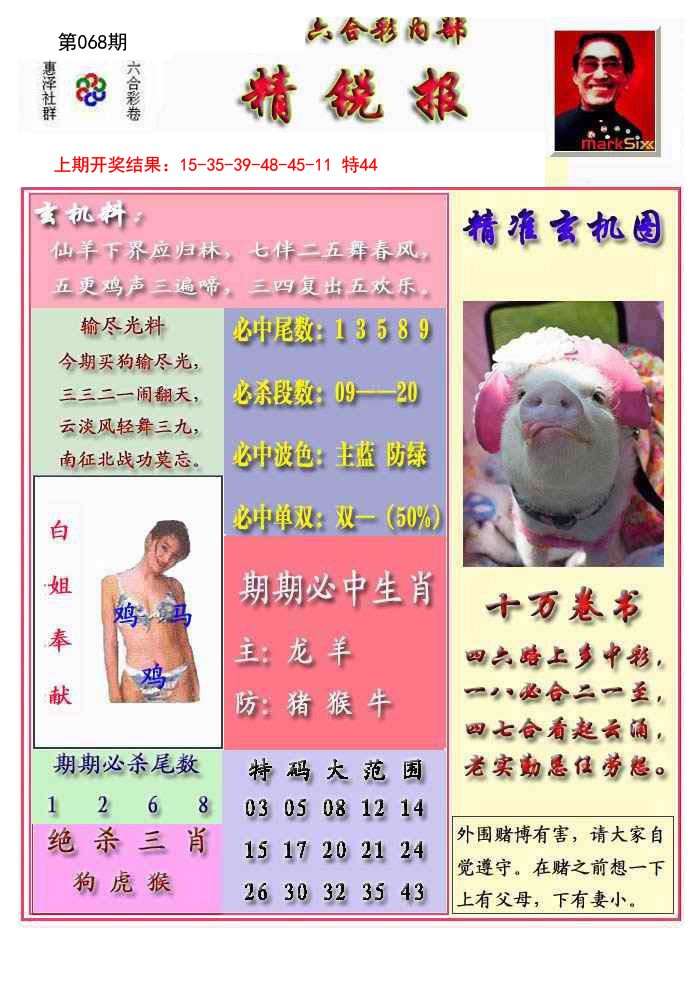 第068期
六合彩内部
惠泽社群
六合彩卷
精锐报
markSix
上期开奖结果：15-35-39-48-45-11 特44
玄机料：
仙羊下界应归林，七伴二五舞春风，
五更鸡声三遍啼，三四复出五欢乐。
输尽光料
今期买狗输尽光，
三三二一闹翻天，
云淡风轻舞三九，
南征北战功莫忘。
必中尾数：1 3 5 8 9
必杀段数：09——20
必中波色：主蓝 防绿
必中单双：双—（50%）
白姐奉献
鸡 马
鸡
期期必中生肖
主：龙 羊
防：猪 猴 牛
期期必杀尾数
1 2 6 8
绝杀三肖
狗 虎 猴
特码大范围
03 05 08 12 14
15 17 20 21 24
26 30 32 35 43
精准玄机图
十万卷书
四六路上多中彩，
一八必合二一至，
四七合看起云涌，
老实勤恳任劳怨。
外围赌博有害，请大家自
觉遵守。在赌之前想一下
上有父母，下有妻小。